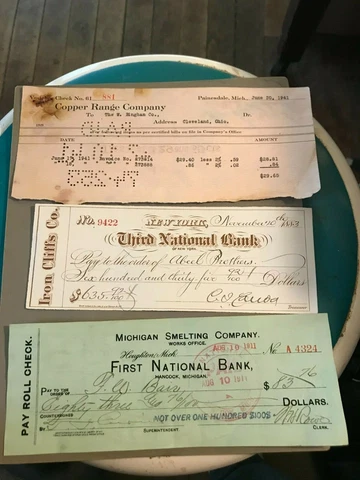 Check No. 61 881
Painesdale, Mich. June 20, 1941
Copper Range Company
To The W. Bingham Co., Dr.
Address Cleveland, Ohio.
as per certified bills on file in Company's Office
DATE AMOUNT
1941 Invoice $29.40 less 2% .59 $28.81
.86 2% .02 .84
$29.65
Iron Cliffs Co.
No. 9422 NEW YORK, November 10th 1883
Third National Bank
OF NEW YORK
Pay to the order of Abeel Brothers.
Six hundred and thirty five 92/100 Dollars
$635 92/100
PAY ROLL CHECK.
MICHIGAN SMELTING COMPANY.
WORKS OFFICE.
Houghton, Mich. AUG 10 1911 No A 4324
FIRST NATIONAL BANK,
HANCOCK, MICHIGAN.
AUG 10 1911
PAY TO THE ORDER OF $83 76
Eighty three 76/100 DOLLARS.
COUNTERSIGNED
NOT OVER ONE HUNDRED $100$
SUPERINTENDENT. CLERK.